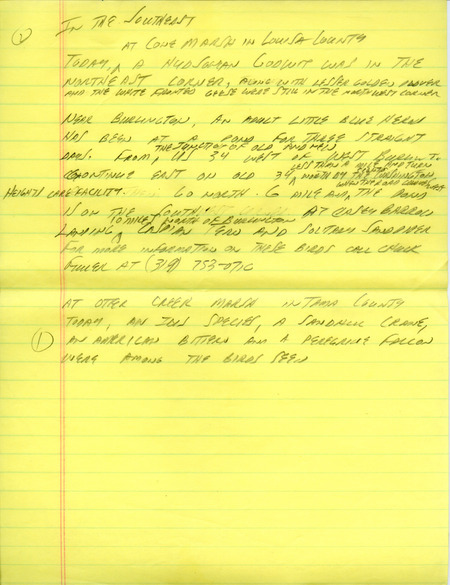 ② IN THE SOUTHEAST
AT CONE MARSH IN LOUISA COUNTY
TODAY, A HUDSONIAN GODWIT WAS IN THE
NORTHEAST CORNER, ALONG WITH LESSER GOLDEN PLOVER
AND THE WHITE FRONTED GEESE WERE STILL IN THE NORTHWEST CORNER
NEAR BURLINGTON, AN ADULT LITTLE BLUE HERON
HAS BEEN AT A POND FOR THREE STRAIGHT
THE JUNCTION OF OLD AND NEW
DAYS. FROM, US 34 WEST OF WEST BURLINGTON
LESS THAN A MILE AND THEN
CONTINUE EAST ON OLD 34 NORTH BY THE BURLINGTON
HEIGHTS CARE FACILITY. GO NORTH .6 MILE AND, THE POND
IS ON THE SOUTH. AT CASEY BARROW
10 MILES NORTH OF BURLINGTON
LANDING, CASPIAN TERN AND SOLITARY SANDPIPER
FOR MORE INFORMATION ON THESE BIRDS CALL CHUCK
FULLER AT (319) 753-0716
AT OTTER CREEK MARSH IN TAMA COUNTY
TODAY, AN IBIS SPECIES, A SANDHILL CRANE,
① AN AMERICAN BITTERN AND A PEREGRINE FALCON
WERE AMONG THE BIRDS SEEN